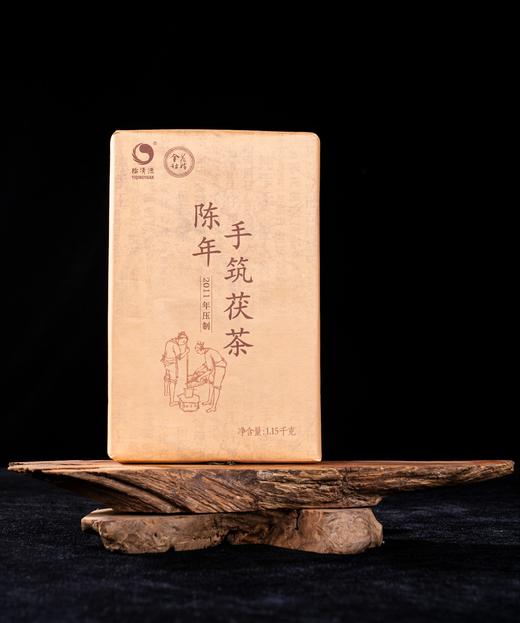 怡清源
YIQINGYUAN
陈年
手筑茯茶
2011年压制
净含量:1.15千克